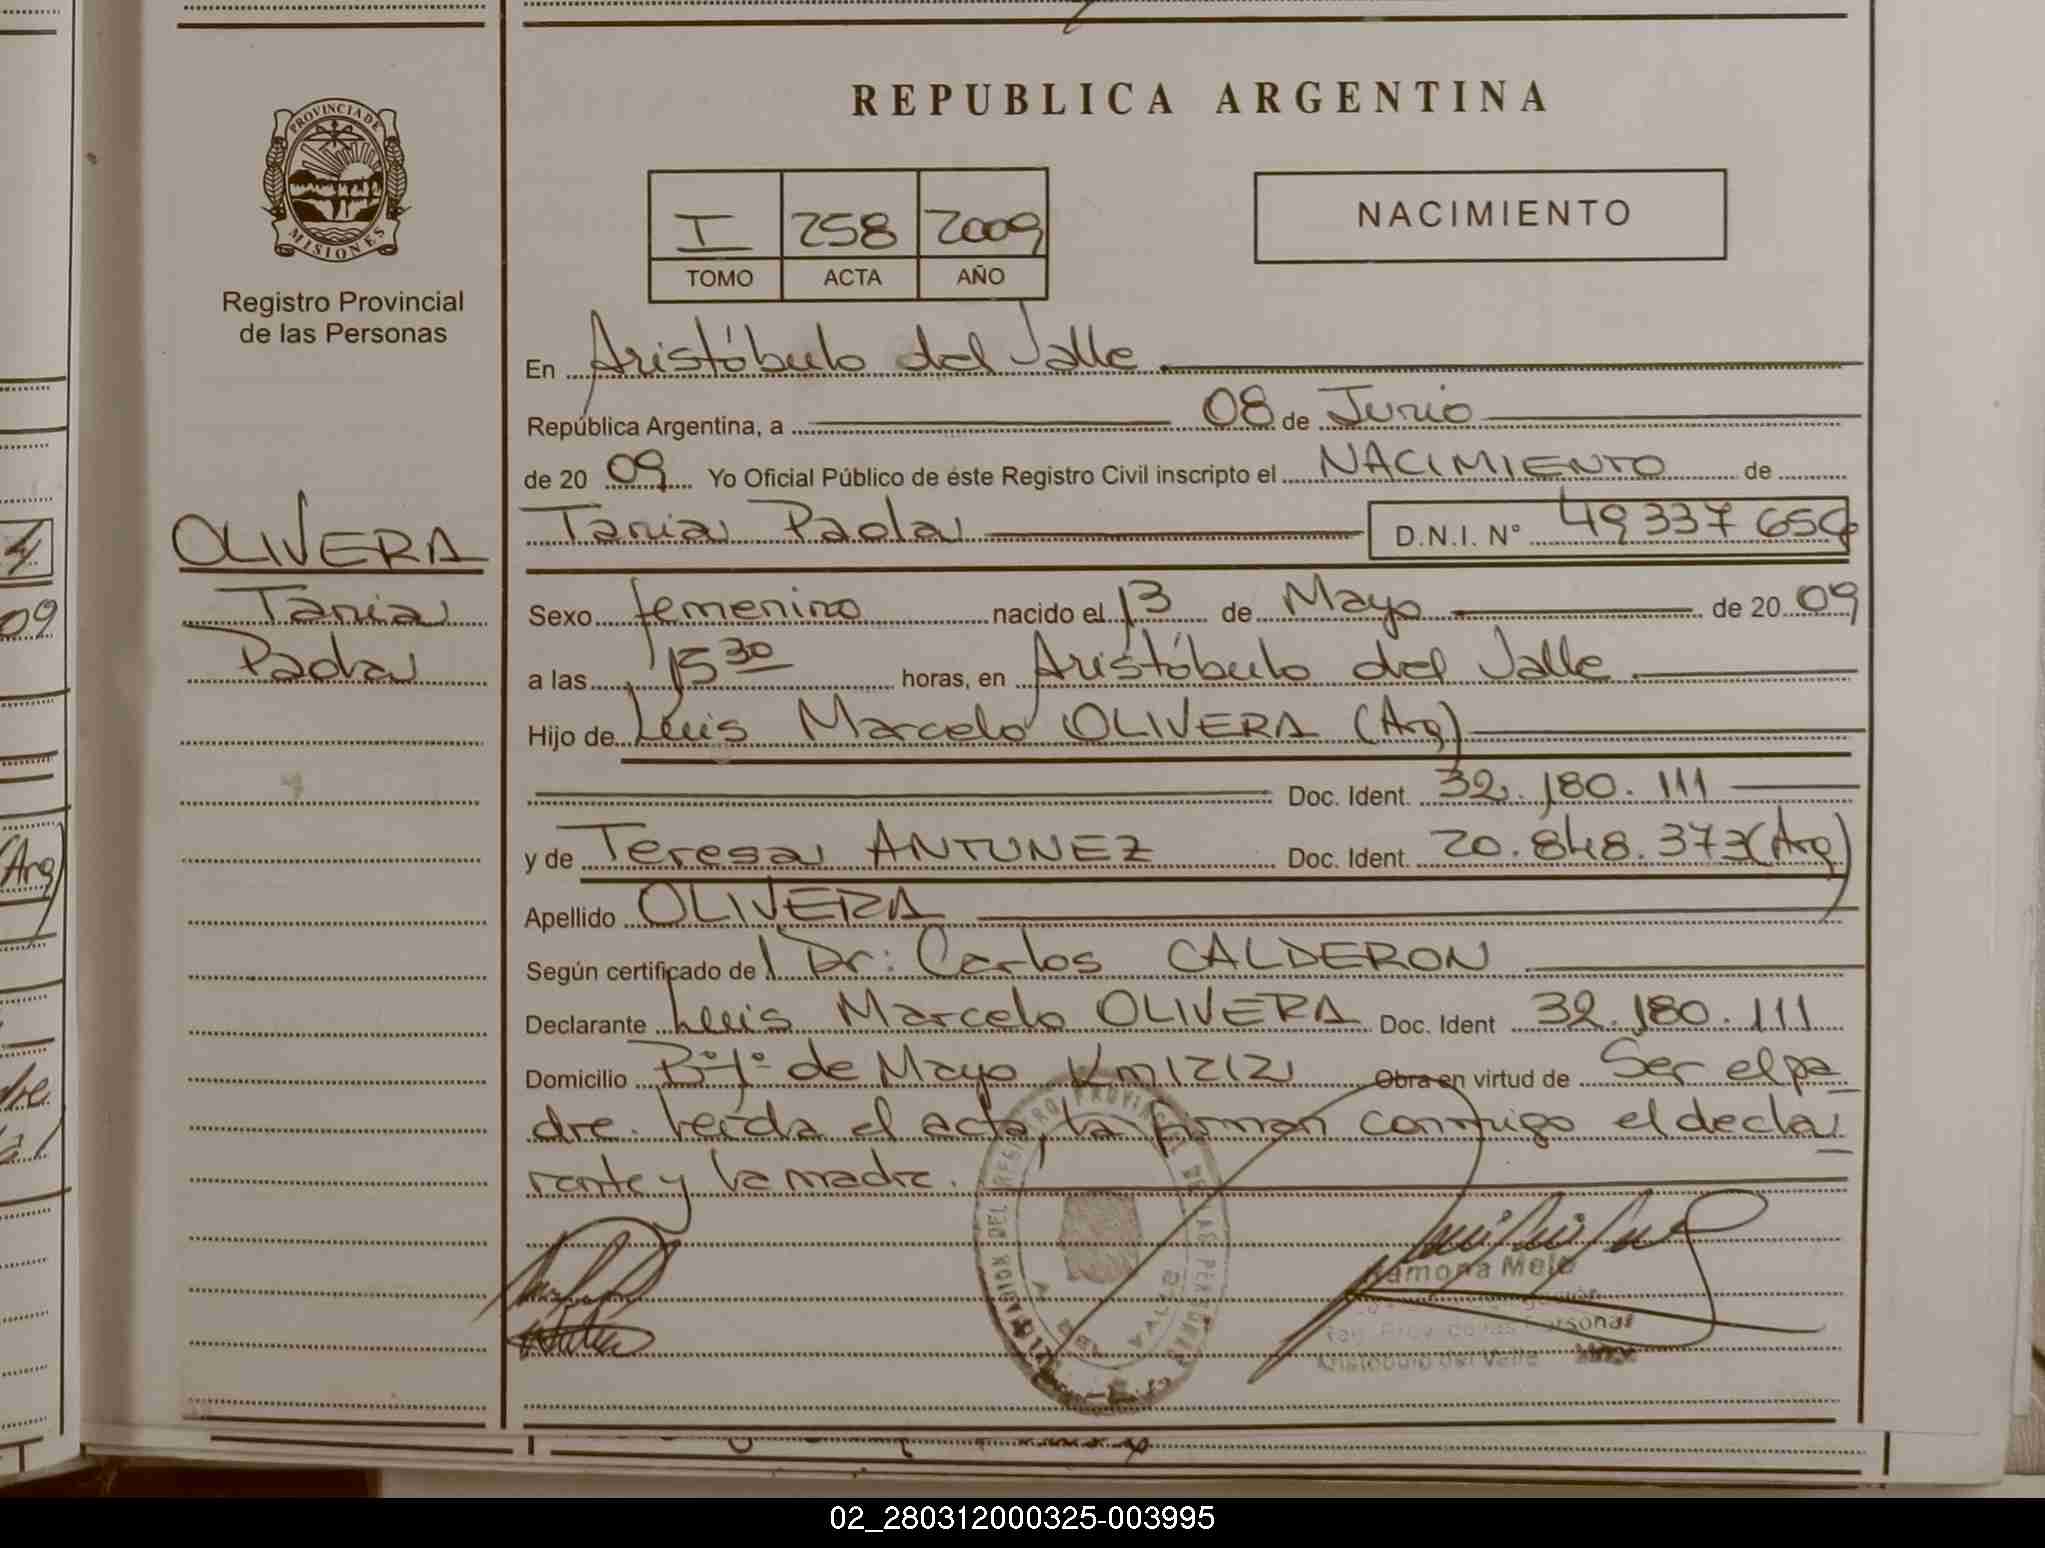 REPUBLICA ARGENTINA
PROVINCIA DE
MISIONES
Registro Provincial
de las Personas
I 258 2009
TOMO ACTA AÑO
NACIMIENTO
En Aristóbulo del Valle
República Argentina, a 08 de Junio
de 20 09 Yo Oficial Público de éste Registro Civil inscripto el NACIMIENTO de
OLIVERA
Tania Paola
Tania Paola D.N.I. N° 49337656
Sexo femenino nacido el 13 de Mayo de 20 09
a las 15 30 horas, en Aristóbulo del Valle
Hijo de Luis Marcelo OLIVERA (Arg)
Doc. Ident. 32.180.111
y de Teresa ANTUNEZ Doc. Ident. 20.848.373 (Arg)
Apellido OLIVERA
Según certificado de Dr: Carlos CALDERON
Declarante Luis Marcelo OLIVERA Doc. Ident 32.180.111
Domicilio B° 1° de Mayo Km 1212 Obra en virtud de Ser el pa
dre. Leída el acta, la firman conmigo el decla
rante y la madre.
Ramona Melo
Aristóbulo del Valle
02_280312000325-003995